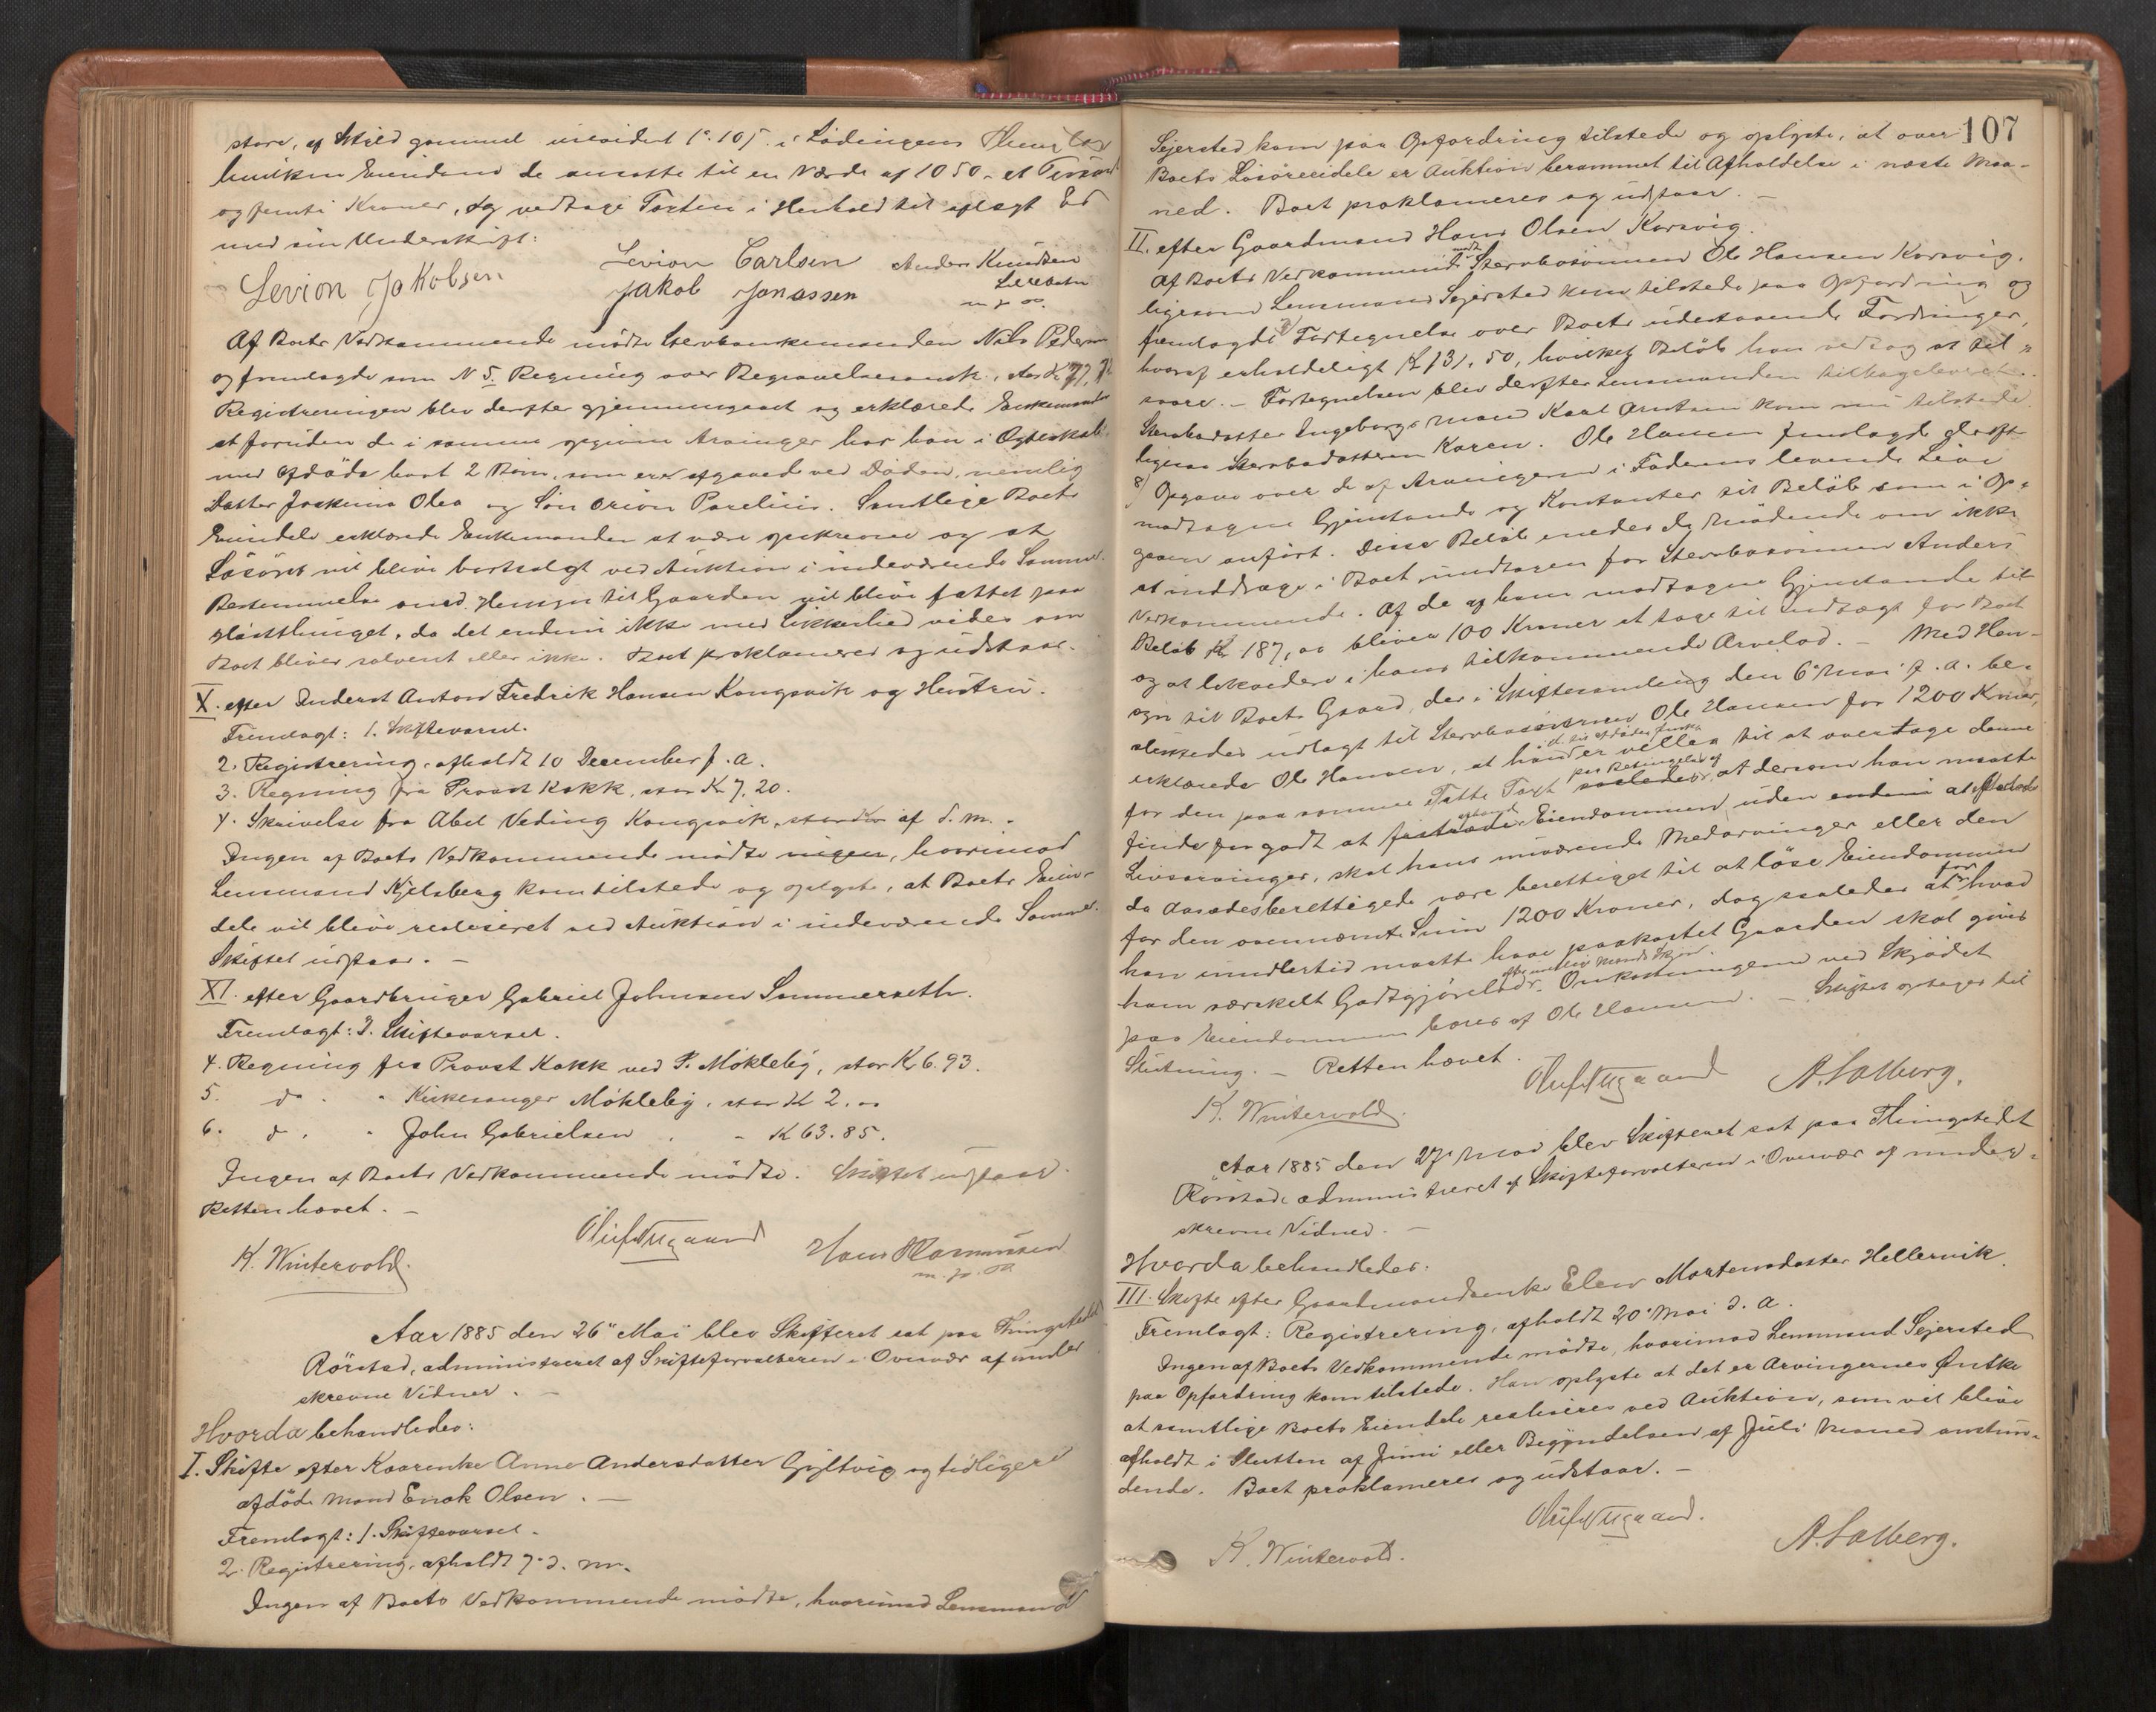 store, af Skyld gammel 1ᵒ.10 i Lödingens Thinglag
hvilken Eiendom de ansatte til en Værdi af 1050 - et Tusind
og femti Kroner, og vedtage Taxten i Henhold til aflagt Ed
med sin Underskrift:
Levion Jakobsen Levion Carlsen Anders Knudsen
Jakob Jonassen
m. p. P.
Af Boets Vedkommende mödte Stervbenkemanden Nils Pedersen
og fremlagde som N 5. Regning over Begravelsesomk., stor K 77,
Registreringen blev derefter gjennemgaaet og erklærede Enkemanden
at foruden de i samme opgivne Arvinger har han i Ægteskab
med Afdöde havt 2 Börn, som er afgaaede ved Döden, nemlig
Datter Joakima Olea og Sön Orion Parelius. Samtlige Boets
Eiendele erklærede Enkemanden at være opskrevne og at
Lösöret vil blive bortsolgt ved Auktion i indeværende Sommer.
Bestemmelse med Hensyn til Gaarden vil blive fattet paa
Höstthinget, da det endnu ikke med Sikkerhed vides om
Boet bliver solvent eller ikke. Boet proklameres og udstaar.
X. efter Inderst Anton Fredrik Hansen Kongsvik og Hustru.
Fremlagt: 1. Skiftevarsel.
2. Registrering, afholdt 10 December f. a.
3. Regning fra Provst Kokk, stor K 7,20.
4. Skrivelse fra Abel Veding Kongsvik, af d. m. -
Ingen af Boets Vedkommende mödte ingen, hvorimod
Lensmand Kjelsberg kom tilstede og oplyste, at Boets Eien-
dele vil blive realiseret ved Auktion i indeværende Sommer.
Skiftet udstaar. -
XI. efter Gaardbruger Gabriel Johnsen Sommerseth.
Fremlagt: 3. Skiftevarsel.
4. Regning fra Provst Kokk ved P. Mökleby, stor K 6.93.
5. do. " Kirkesanger Mökleby, stor K 2.oo
6. do. " John Gabrielsen " " K 63.85.
Ingen af Boets Vedkommende mödte. Skiftet udstaar.
Retten hævet. -
K. Wintervold. Oluf Nygaard Hans Rasmussen
m. p. P.
Aar 1885 den 26" Mai blev Skifteret sat paa Thingstedet
Rörstad, administreret af Skifteforvalteren i Overvær af under
skrevne Vidner. -
Hvorda behandledes:
I. Skifte efter Kaarenke Anne Andersdatter Gyltvig og tidligere
afdöde Mand Enok Olsen. -
Fremlagt: 1. Skiftevarsel.
2. Registrering, afholdt 7. d. m.
Ingen af Boets Vedkommende mödte, hvorimod Lensmand
107
Sejersted kom paa Opfordring tilstede og oplyste, at over
Boets Lösöreiendele er Auktion berammet til Afholdelse i næste Maa-
ned. Boet proklameres og udstaar. -
II. efter Gaardmand Hans Olsen Korsvig.
Af Boets Vedkommende mödte Stervbosönnen Ole Hansen Korsvig.
ligesom Lensmand Sejersted kom tilstede paa Opfordring og
fremlagde 7) Fortegnelse over Boets udestaaende Fordringer,
hvoraf erholdeligt K 131.50, hvilket Belöb han vedtog at til-
svare. - Fortegnelsen blev derefter Lensmanden tilbageleveret.
Stervbodatter Ingeborgs Mand Kaal Arntsen kom nu tilstede
ligesaa Stervbodatteren Karen. Ole Hansen fremlagde derefter
8) Opgave over de af Arvingerne i Faderens levende Live
modtagne Gjenstande og Kontanter til Belöb som i Op-
gaven anfört. Disse Belöb enedes de Mödende om ikke
at inddrage i Boet undtagen for Stervbosönnen Anders
Vedkommende. Af de af ham modtagne Gjenstande til
Belöb K 187,oo bliver 100 Kroner at tage til Indtægt for Boet
og at likvidere i hans tilkommende Arvelod. - Med Hen-
syn til Boets Gaard, der i Skiftesamling den 6' Mai f. a. be-
sluttedes udlagt til Stervbosönnen Ole Hansen for 1200 Kroner,
erklærede Ole Hansen, at han er villig til at overtage denne
for den paa samme satte Taxt paa Betingelse af saaledes, at dersom han maatte
finde for godt at fratræde Eiendommen uden at efterlade
Livsarvinger, skal hans nuværende Medarvinger eller den
da Aasædesberettigede være berettiget til at löse Eiendommen
for den ovennævnte Sum 1200 Kroner, dog saaledes at for hvad
han imidlertid maatte have paakostet Gaarden skal gives
ham særskilt Godtgjörelse efter uvillige Mænds Skjön. Omkostningerne ved Skjödet
paa Eiendommen bæres af Ole Hansen. - Skiftet optages til
Slutning. - Retten hævet.
K. Wintervold. Oluf Nygaard A. Solberg.
Aar 1885 den 27' Mai blev Skifteret sat paa Thingstedet
Rörstad, administreret af Skifteforvalteren i Overvær af under-
skrevne Vidner. -
Hvorda behandledes:
III. Skifte efter Gaardmandsenke Elen Mortensdatter Hellervik.
Fremlagt: Registrering, afholdt 20' Mai d. a.
Ingen af Boets Vedkommende mödte, hvorimod Lensmand Sejersted
paa Opfordring kom tilstede. Han oplyste at det er Arvingernes Önske
at samtlige Boets Eiendele realiseres ved Auktion, som vil blive
afholdt i Slutten af Juni eller Begyndelsen af Juli Maaned anstun-
dende. Boet proklameres og udstaar. -
K. Wintervold. Oluf Nygaard. A. Solberg.